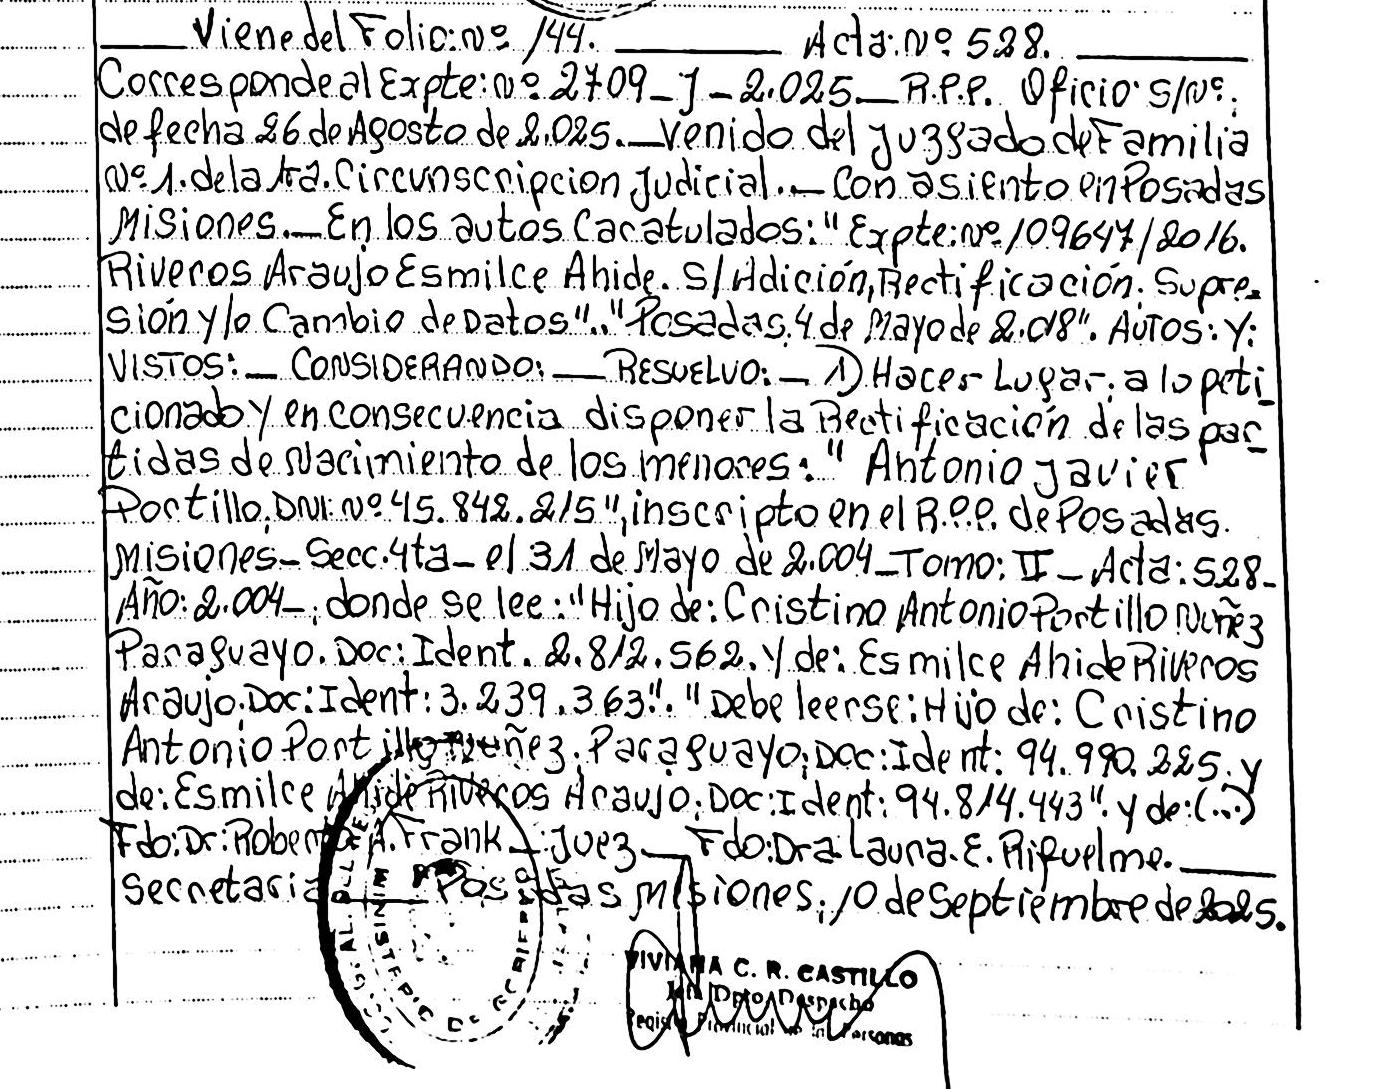 Viene del Folio: Nº 144. Acta: Nº 528.
Corresponde al Expte: Nº 2709_J_2.025._R.P.P. Oficio S/Nº.
de fecha 26 de Agosto de 2.025._Venido del Juzgado de Familia
Nº 1. de la 1ra. Circunscripcion Judicial._ Con asiento en Posadas
Misiones._En los autos Caratulados: "Expte: Nº 109647/2016.
Riveros Araujo Esmilce Ahide. S/Adición, Rectificación, Supre_
sión y/o Cambio de Datos".."Posadas, 4 de Mayo de 2.018". AUTOS: Y:
VISTOS:_ CONSIDERANDO:_ RESUELVO:_ 1) Hacer Lugar, a lo peti_
cionado y en consecuencia disponer la Rectificación de las par_
tidas de Nacimiento de los menores: "Antonio Javier
Portillo, DNI: Nº 45.842.215", inscripto en el R.P.P. de Posadas.
Misiones_Secc. 4ta_ el 31 de Mayo de 2.004_Tomo: II_Acta: 528_
Año: 2.004_, donde se lee: "Hijo de: Cristino Antonio Portillo Nuñez
Paraguayo. Doc: Ident. 2.812.562. y de: Esmilce Ahide Riveros
Araujo. Doc: Ident: 3.239.363". "Debe leerse: Hijo de: Cristino
Antonio Portillo Nuñez. Paraguayo; Doc: Ident: 94.990.225. y
de: Esmilce Ahide Riveros Araujo. Doc: Ident: 94.814.443". y de: (...)
Fdo: Dr: Roberto A. Frank_: Juez_ Fdo: Dra Laura. E. Riquelme.
Secretaria_ Posadas Misiones, 10 de Septiembre de 2025.
VIVIANA C. R. CASTILLO
Jefa Dpto Despacho
Registro Provincial de las Personas